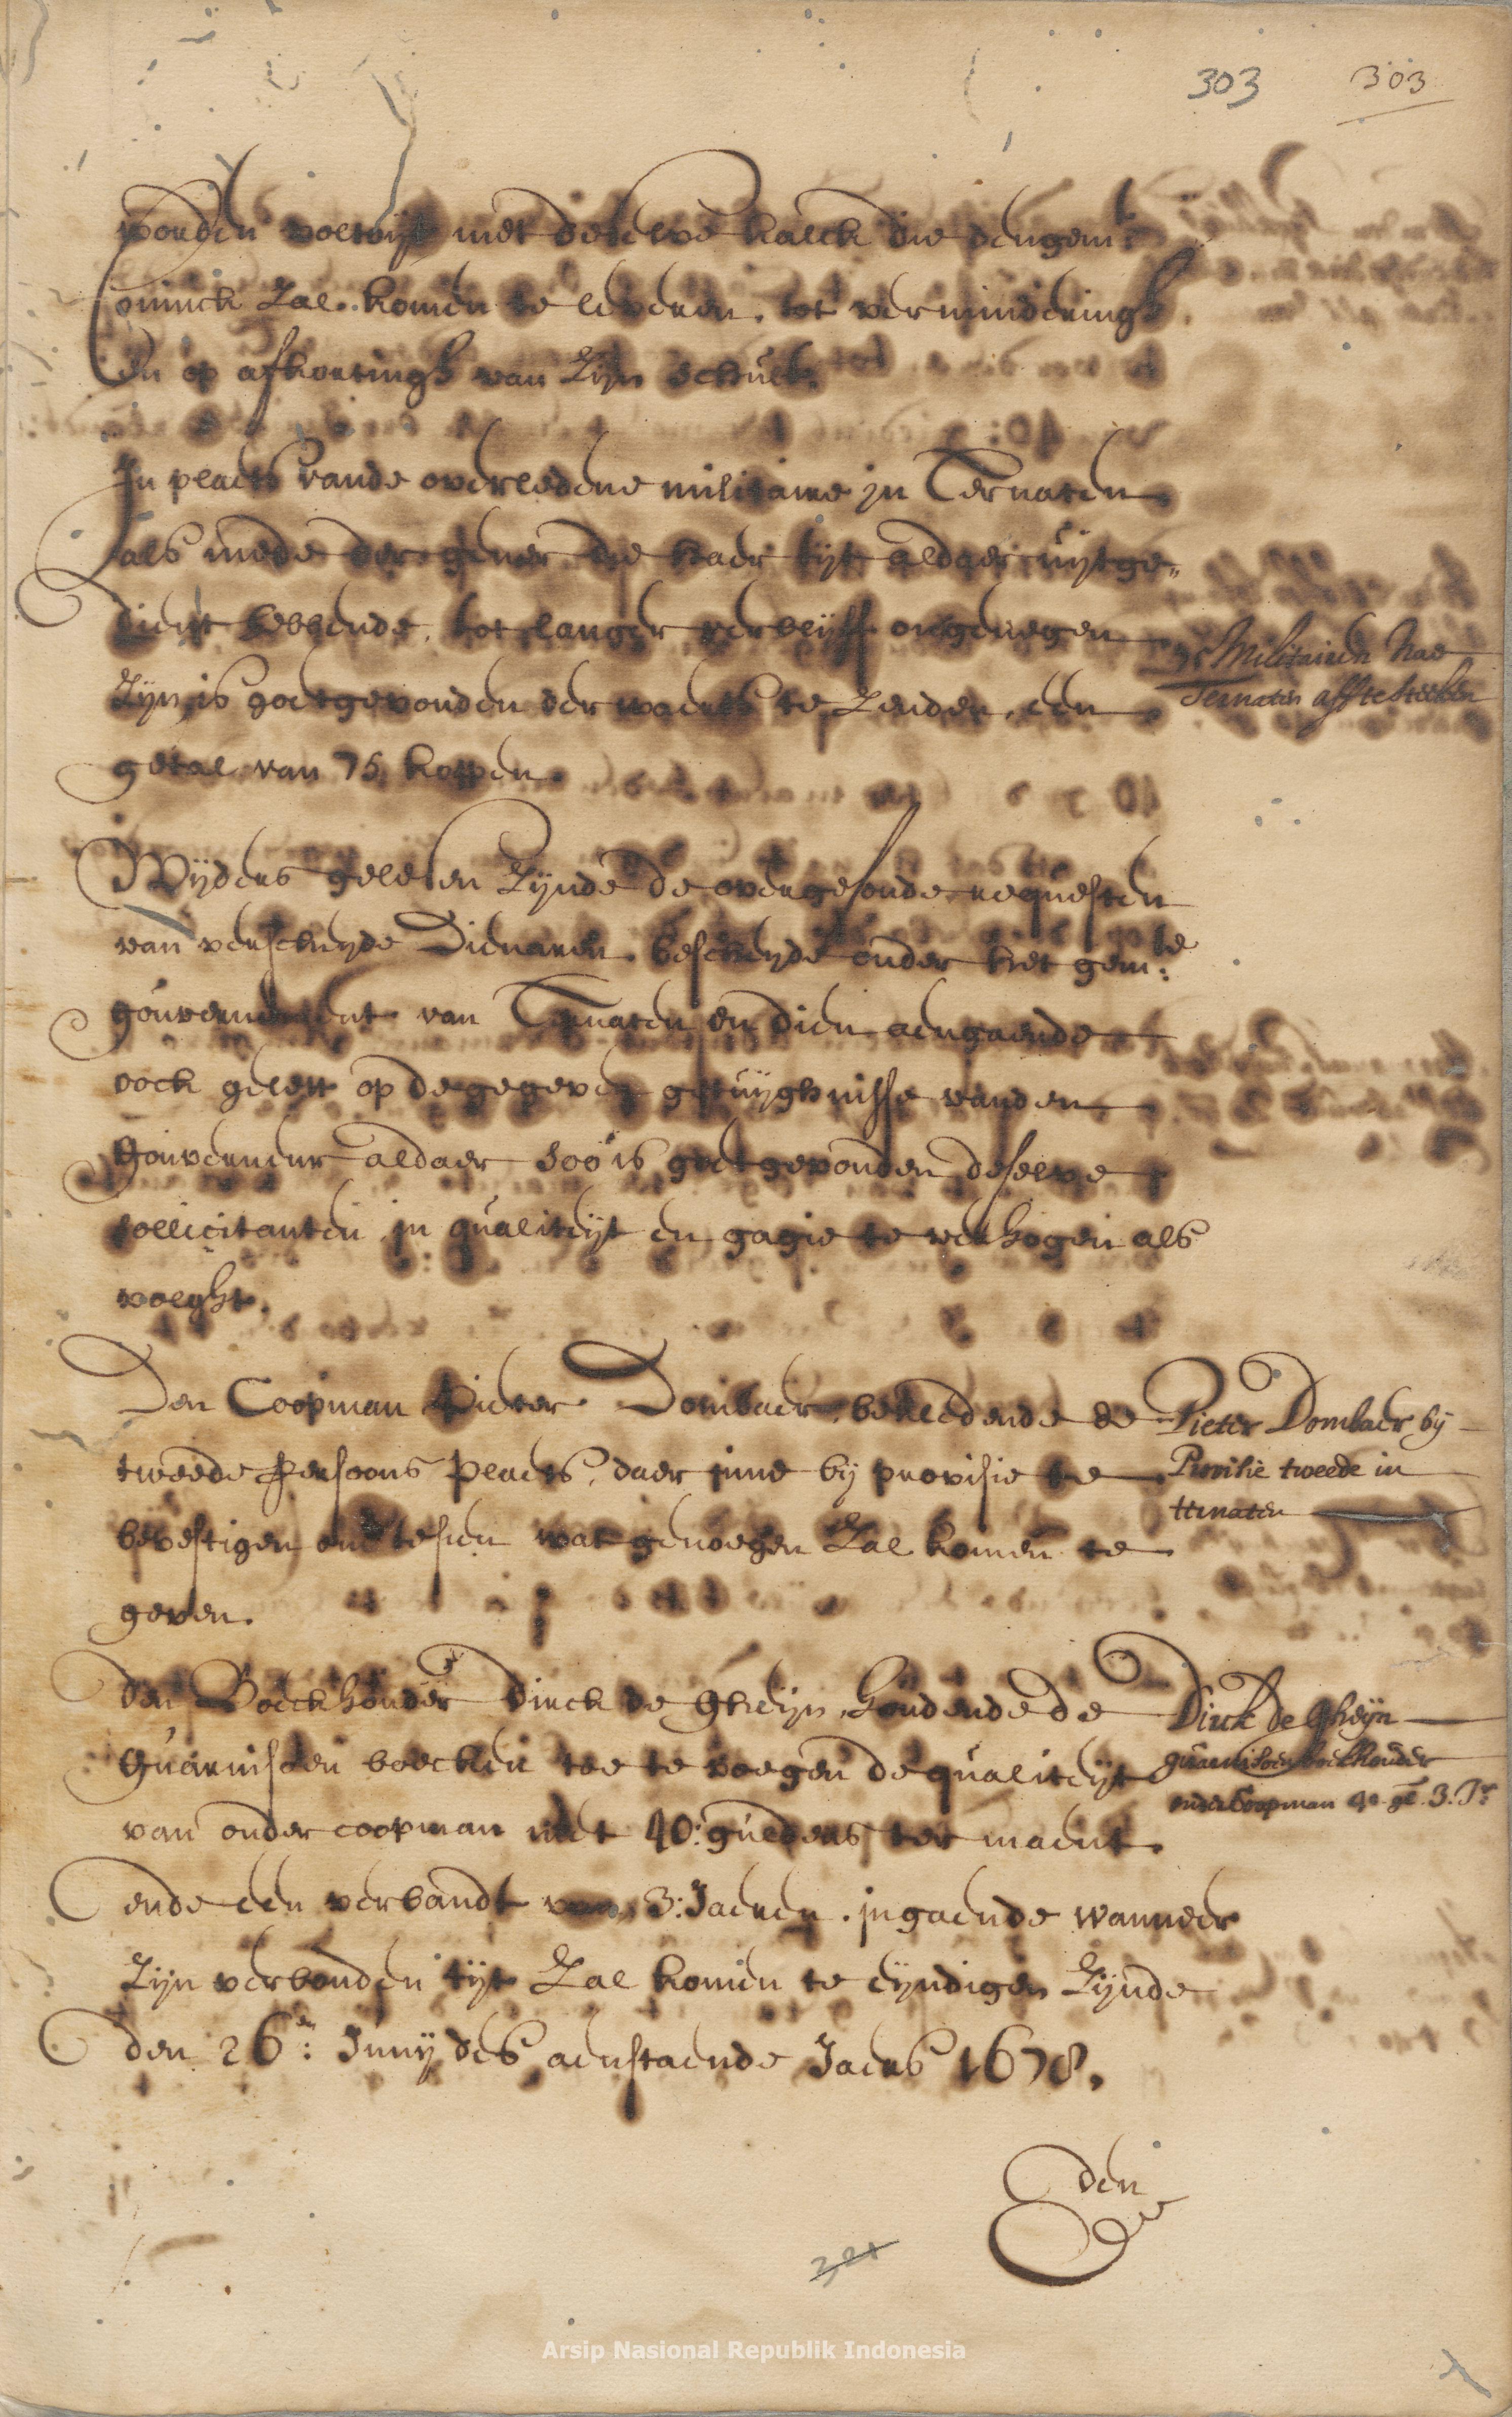 303 303
worden voltoijt met deselve kalck die den gem:
Coninck zal komen te leveren, tot verminderingh
en op afkortingh van zijn schult.
In plaets vande overledene militaire in Ternaten
als mede der gener die haer tijt aldaer uijtge„
dient hebbende, tot langer verblijff ongenegen
zijn, is goetgevonden derwaerts te zenden, een
getal van 75 koppen.
75 Militairen nae
Ternaten aff te steeken
Wijders gelesen zijnde de overgesonde requesten
van verscheyde Dienaren bescheyde onder het gem:te
gouvernement van Ternaten en dien aengaende
oock gelett op de gegeven getuijghnisse vanden
Gouverneur aldaer soo is goetgevonden deselve
sollicitanten in qualiteijt en gagie te verhogen als
volght.
Den Coopman Pieter Dombaer, bekledende de
tweede persoons plaets, daer inne bij provisie te
bevestigen om te sien wat genoegen zal komen te
geven.
Pieter Dombaer bij
Provisie tweede in
ternaten
Den Boeckhouder Dirck de Gheijn, houdende de
Guarnisoen boecken toe te voegen de qualiteijt
van onder coopman met 40: guldens ter maent
ende een verbandt van 3: Jaeren, ingaende wanneer
zijn verbonden tijt zal komen te eijndigen zijnde
den 26:n Junij des aenstaende Jaers 1678.
Dirck de Gheijn
guarnisoen boekhouder
onder Coopman 40 gl. 3. Jr:
den
321
Arsip Nasional Republik Indonesia